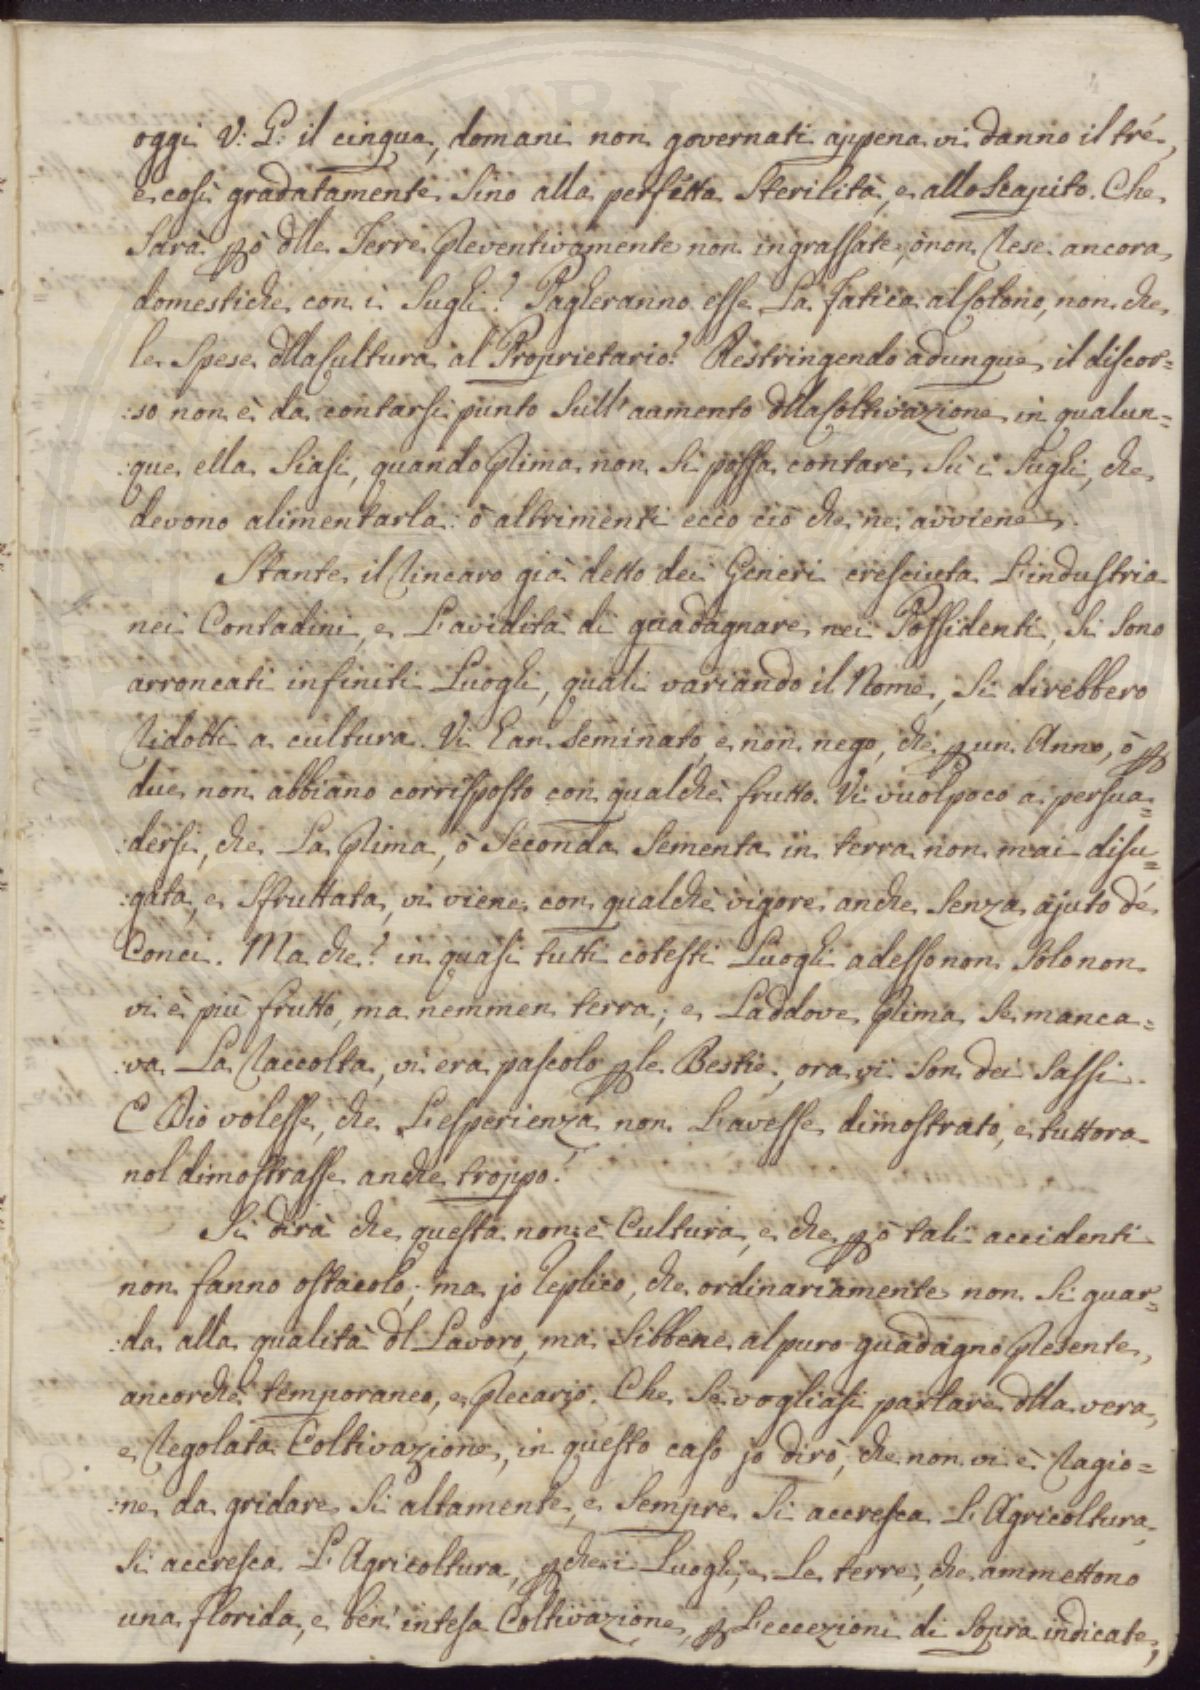 oggi V: G: il cinque, domani non governati appena vi danno il tré,
e così gradatamente sino alla perfetta sterilità, e allo scapito. Che
sarà pò dlle Terre preventivamente non ingrassate, ò non rese ancora
domestiche con i sughi? Pagheranno esse la fatica al Colono, non che
le spese dlla Cultura al Proprietario? Restringendo adunque il discor=
:so non è da contarsi punto sull'aumento dlla Coltivazione in qualun=
:que ella siasi, quando prima non si possa contare sù i sughi, che
devono alimentarla: ò altrimenti ecco ciò che ne avviene.
Stante il rincaro già detto dei Generi cresciuta l'industria
nei Contadini, e l'avidità di guadagnare nei Possidenti, si sono
arroncati infiniti Luoghi, quali variando il Nome, si direbbero
ridotti a cultura. Vi han seminato, e non nego, che p un Anno, ò p
due non abbiano corrisposto con qualche frutto. Vi vuol poco a persua=
:dersi, che la prima, ò seconda sementa in terra non mai disu=
:gata, e sfruttata, vi viene con qualche vigore anche senza ajuto dé
Conci. Ma che? in quasi tutti cotesti Luoghi adesso non solo non
vi è più frutto, ma nemmen terra; e laddove prima se manca=
:va la raccolta, vi era pascolo p le Bestie, ora vi son dei sassi.
E Dio volesse, che l'esperienza non l'avesse dimostrato, e tuttora
nol dimostrasse anche troppo!
Si dirà che questa non è Cultura, e che pò tali accidenti
non fanno ostacolo; ma jo replico, che ordinariamente non si guar=
:da alla qualità dl Lavoro, ma sibbene al puro guadagno presente,
ancorchè temporaneo, e precario. Che se vogliasi parlare dlla vera,
e regolata Coltivazione, in questo caso jo dirò, che non vi è ragio=
:ne da gridare sì altamente, e sempre si accresca l'Agricoltura,
si accresca l'Agricoltura, pche i Luoghi, e le terre, che ammettono
una florida, e ben' intesa Coltivazione, p l'eccezioni di sopra indicate,